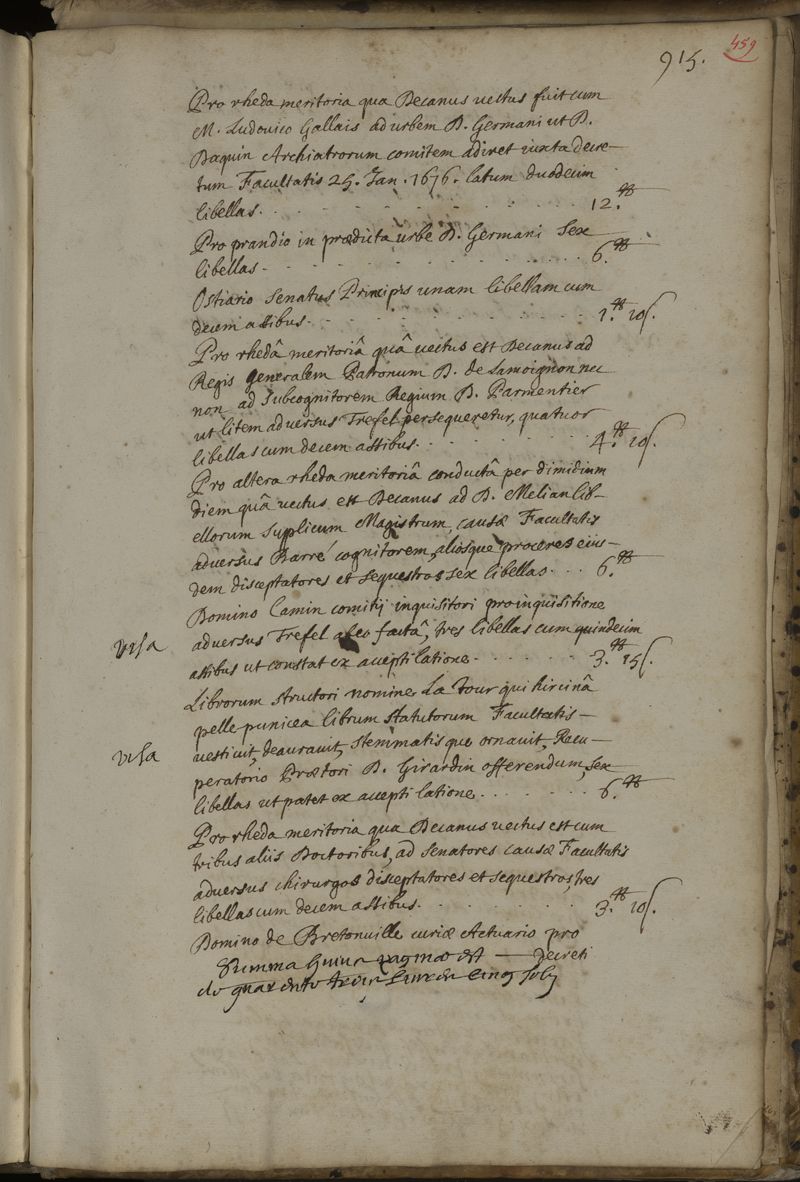 459
915.
Pro rheda meritoria qua Decanus vectus fuit cum
M. Ludovico Gallais ad urbem D. Germani ut D.
Daquin Archiatrorum comitem adiret iuxta decre-
tum Facultatis 25. Jan. 1676. latum duodecim
libellas. 12.tt
Pro prandio in prædicta urbe D. Germani Sex
libellas. 6.tt
Ostiario Senatus Principis unam libellam cum
decem assibus. 1.tt 10ſ.
Pro rhedâ meritoriâ quâ vectus est Decanus ad
Regis generalem Patronum D. de Lamoignon nec
non ad Subcognitorem Regium D. Parmentier
ut litem adversus Trefel persequeretur, quatuor
libellas cum decem assibus. 4.tt 10ſ.
Pro altera rheda meritoriâ conductâ per dimidium
diem quâ vectus est Decanus ad D. Melian lib-
ellorum Suplicum Magistrum, causæ Facultatis
adversus Barré cognitorem, aliosque proceres eius-
dem disceptatores et sequestros sex libellas. 6.tt
Domino Camin comitij inquisitori pro inquisitione
visa
adversus Trefel ab eo factâ, tres libellas cum quindecim
assibus ut constat ex accepti latione. 3.tt 15ſ.
Librorum structori nomine La Tour qui hircinâ
pelle punicea librum statutorum Facultatis
visa
vestivit, deauravit, stemmatisque ornavit, Recu-
peratorio Prætori D. Girardin offerendum, sex
libellas ut patet ex accepti latione. 6.tt
Pro rheda meritoria qua Decanus vectus est cum
tribus aliis Doctoribus, ad Senatores causæ Facultatis
adversus chirurgos disceptatores et sequestros, tres
libellas cum decem assibus. 3.tt 10ſ.
Domino de Bretonville curiæ Actuario pro
decreti
Summa huius paginæ est
de quarente trois livres cinq solz